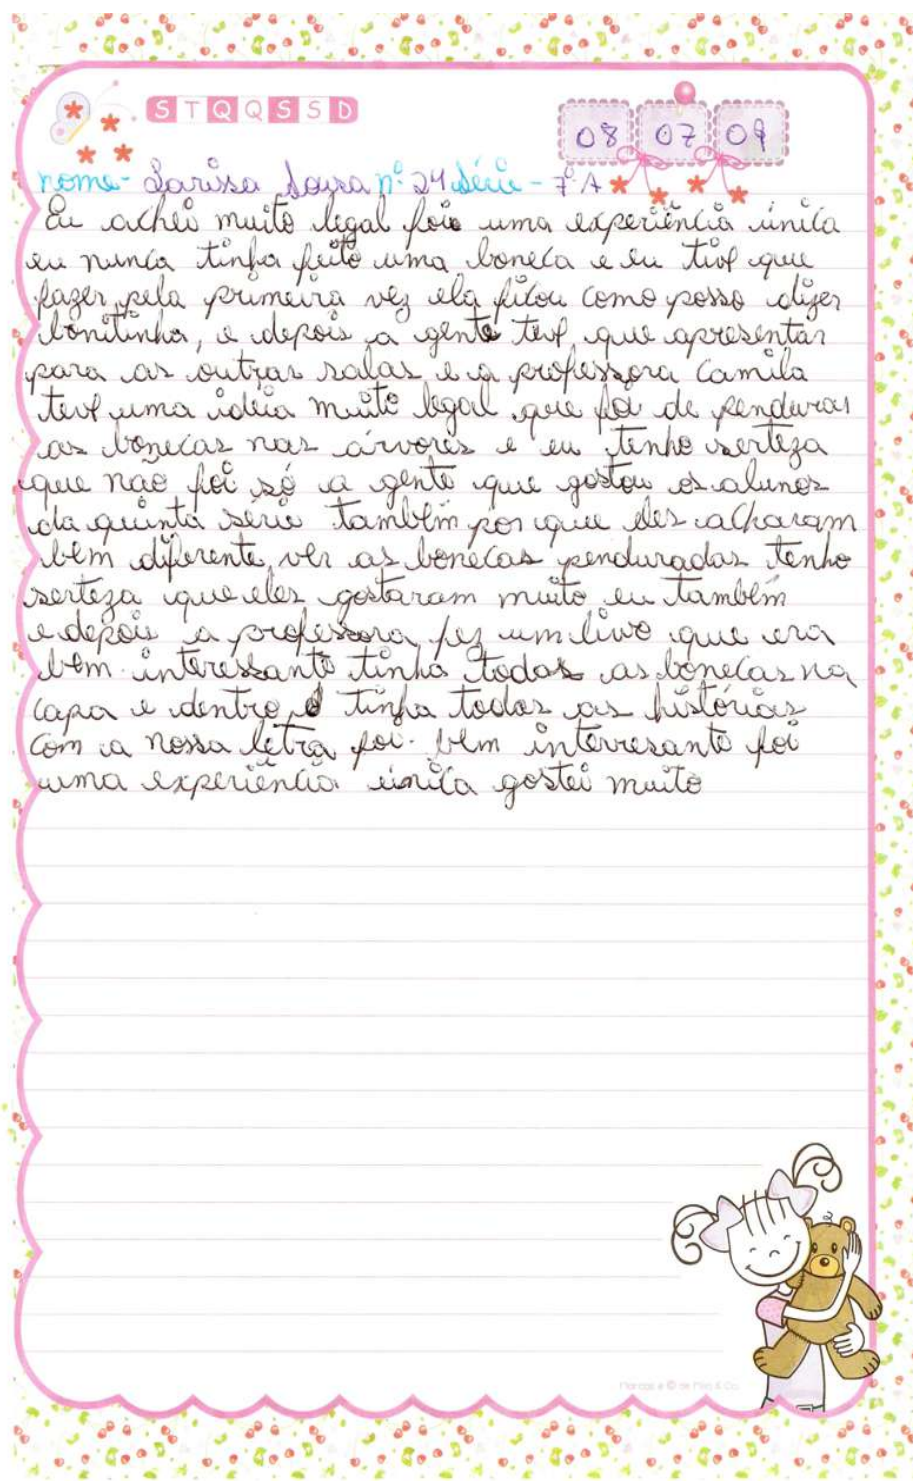 S T Q Q S S D
08 07 09
nome - Larissa Sousa nº 24 Série - 7ª A
Eu achei muito legal foi uma experiência única
eu nunca tinha feito uma boneca e eu tive que
fazer pela primeira vez ela ficou como posso dizer
bonitinha, e depois a gente teve que apresentar
para as outras salas e a professora Camila
teve uma idéia muito legal que foi de pendurar
as bonecas nas árvores e eu tenho serteza
que não foi só a gente que gostou os alunos
da quinta serie também por que eles acharam
bem diferente ver as bonecas penduradas tenho
serteza que eles gostaram muito eu também
e depois a professora fez um livo que era
bem interessante tinha todas as bonecas na
capa e dentro tinha todas as histórias
com a nossa letra foi bem interresante foi
uma experiência única gostei muito